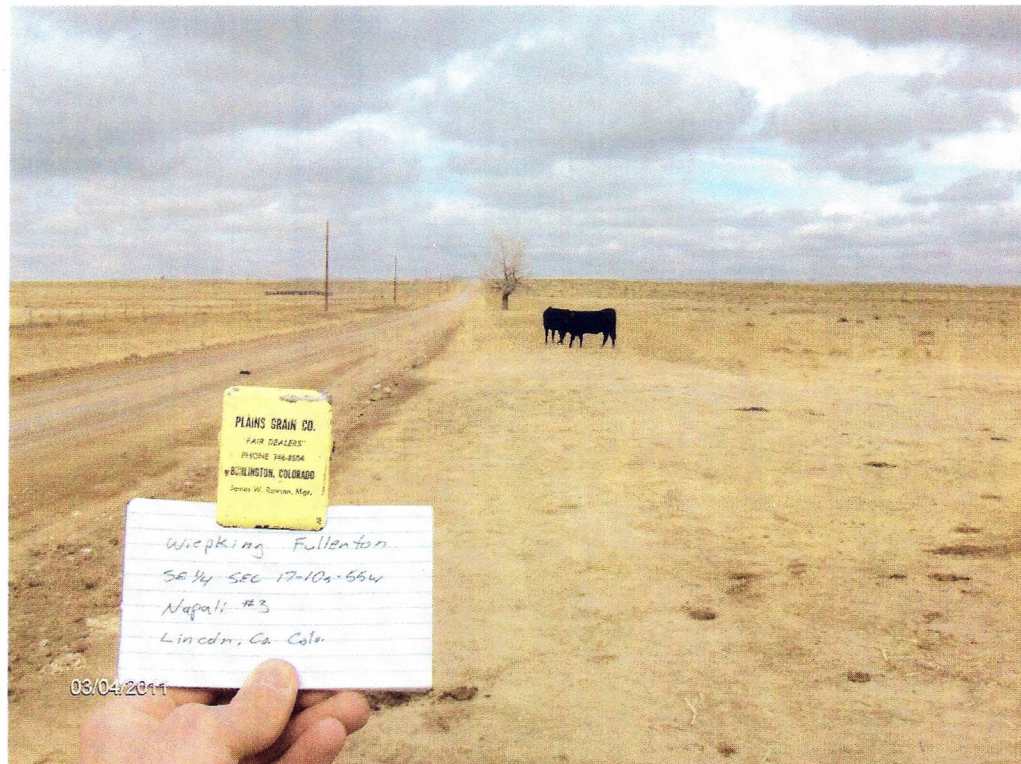 PLAINS GRAIN CO.
"FAIR DEALERS"
PHONE 346-8504
BURLINGTON, COLORADO
James W. Rowson, Mgr.
Wiepking Fullerton
SE 1/4 SEC 17-10s-55w
Napali #3
Lincoln, Co. Colo.
03/04/2011